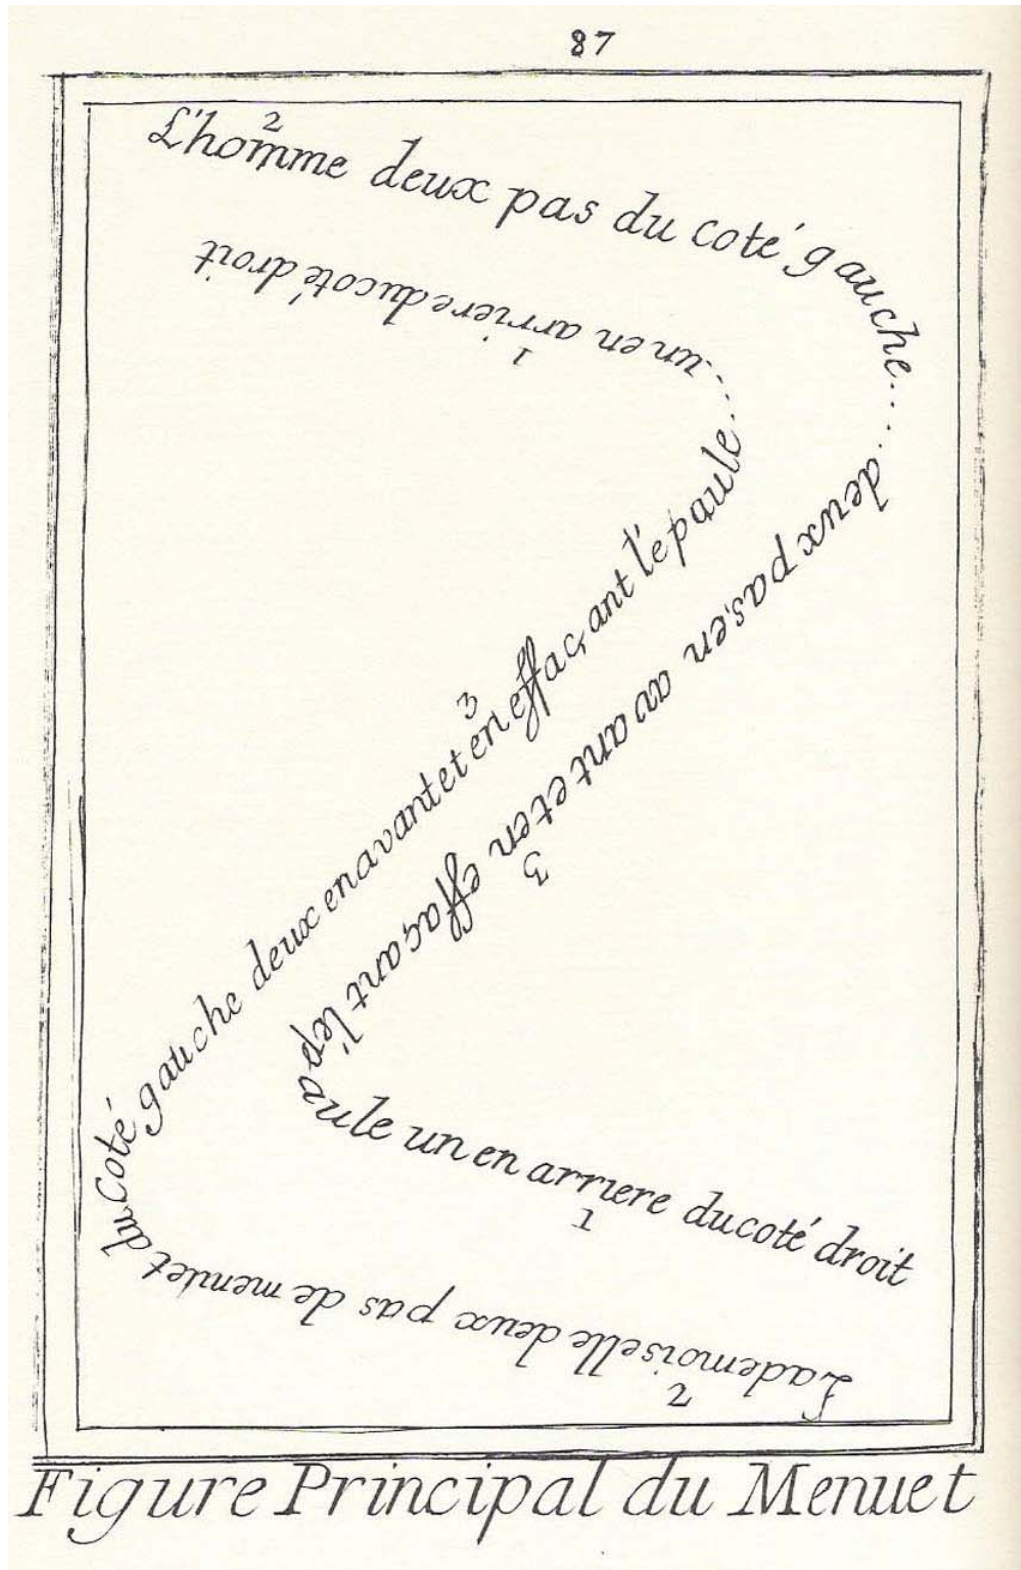 87
2
L'homme deux pas du coté gauche.....
deux pas, en avant et en effaçant l'épaule un en arriere du coté droit
3
1
Lademoiselle deux pas de menuet du Coté gauche deux en avant et en effaçant l'epaule.....
...un en arriere du coté droit
2
3
1
Figure Principal du Menuet